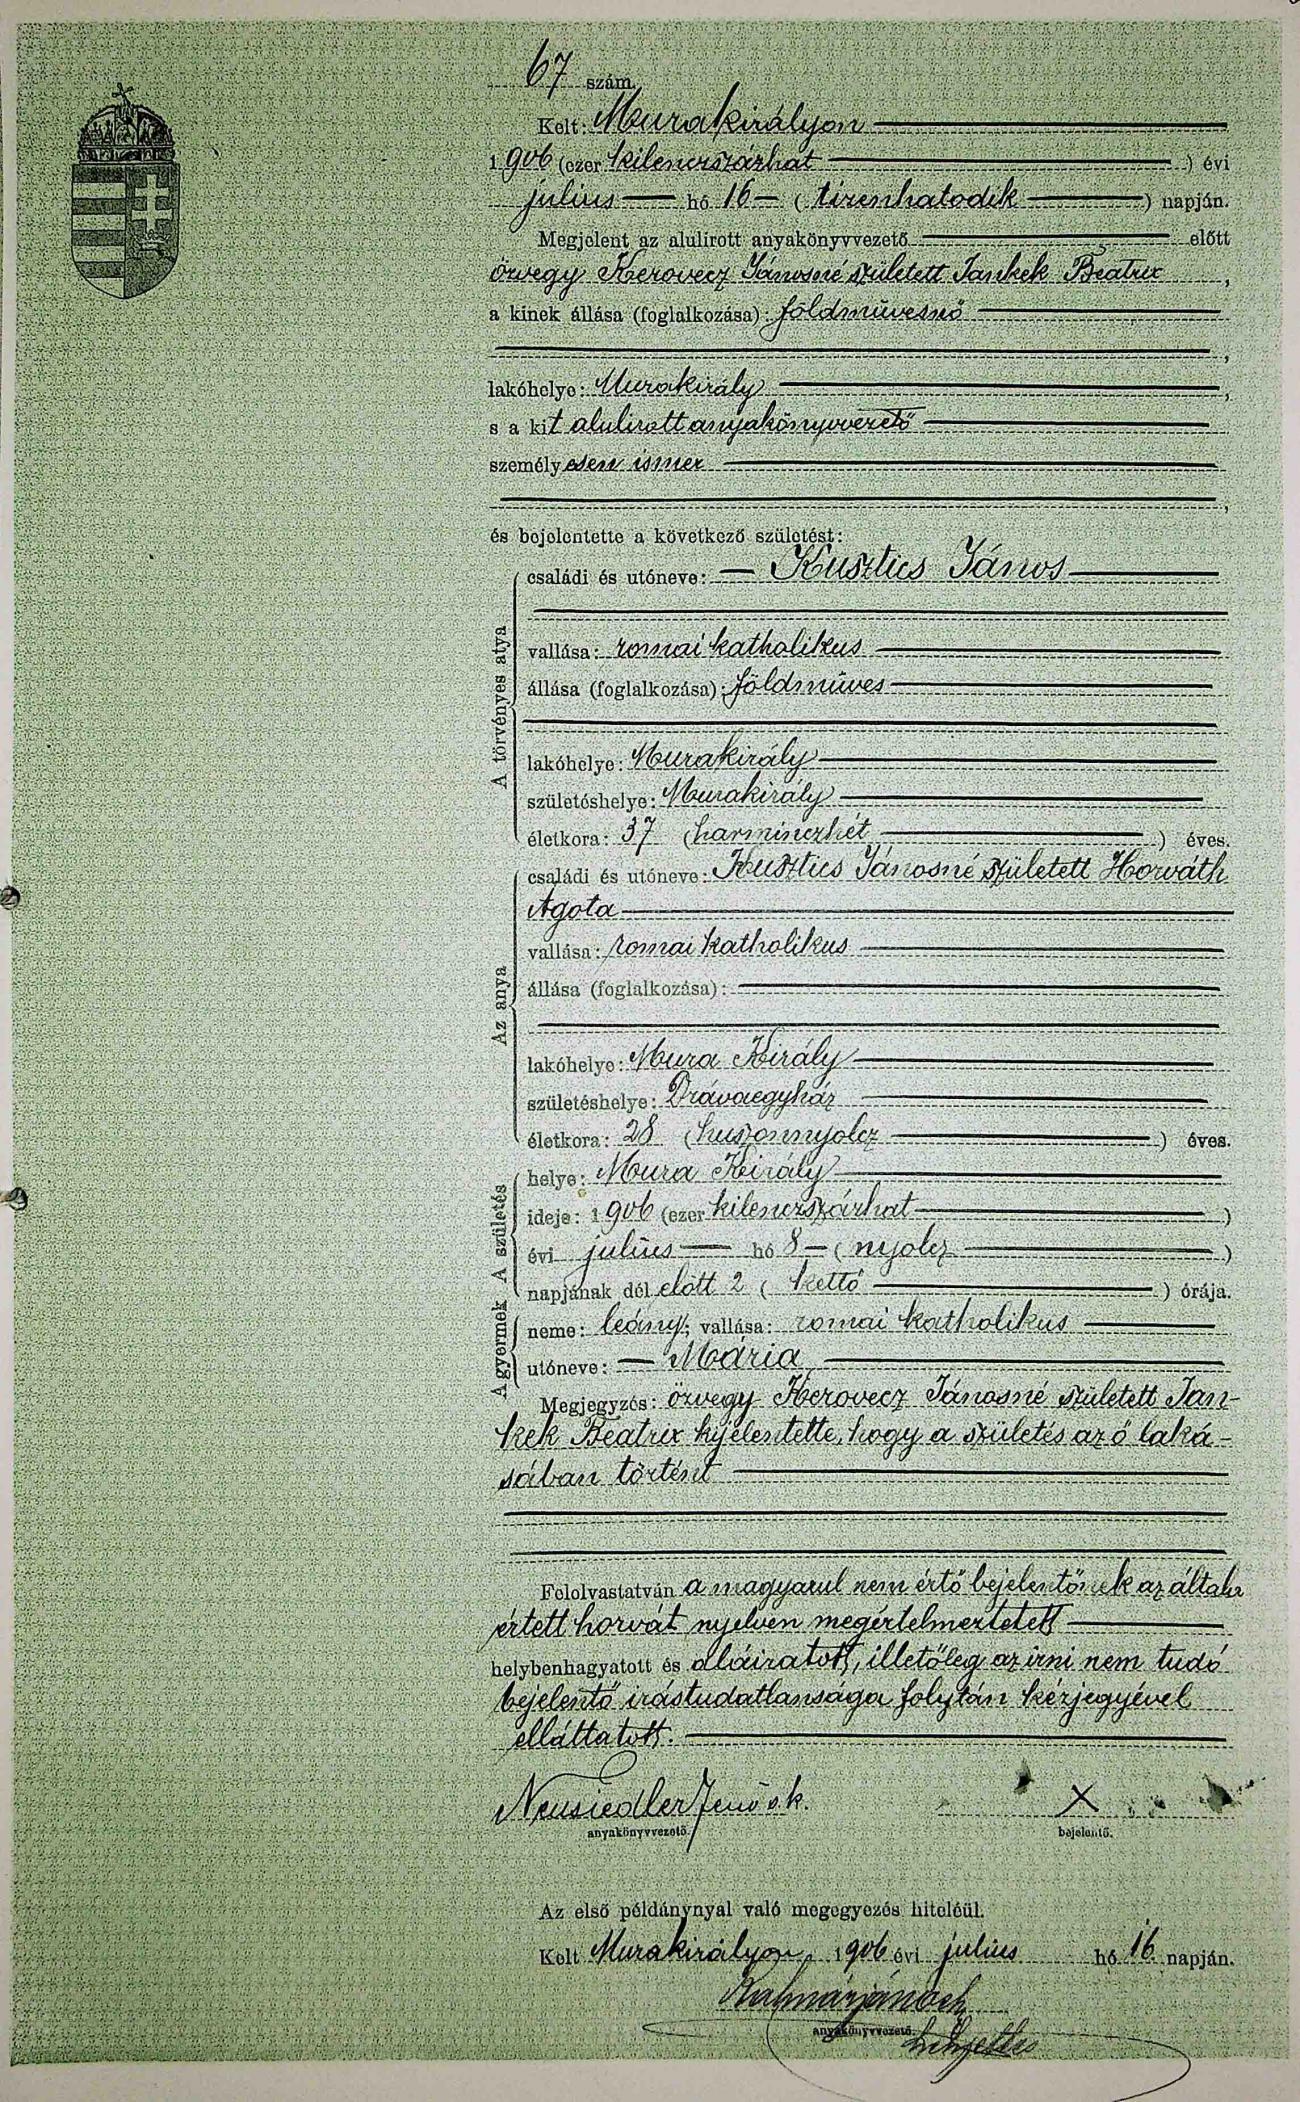 67 szám.
Kelt: Murakirályon
1906 (ezer kilenczszázhat) évi
július hó 16 (tizenhatodik) napján.
Megjelent az alulirott anyakönyvvezető előtt
özvegy Kerovecz Jánosné született Jankek Beatrix,
a kinek állása (foglalkozása): földmüvesnő
,
lakóhelye: Murakirály,
s a kit alulirott anyakönyvvezető
személyesen ismer
,
és bejelentette a következő születést:
A törvényes atya
családi és utóneve: Kusztics János
vallása: romai katholikus
állása (foglalkozása): földmüves
lakóhelye: Murakirály
születéshelye: Murakirály
életkora: 37 (harminczhét) éves.
Az anya
családi és utóneve: Kusztics Jánosné született Horváth
Agota
vallása: romai katholikus
állása (foglalkozása):
lakóhelye: Mura Király
születéshelye: Drávaegyház
életkora: 28 (huszonnyolcz) éves.
A születés
helye: Mura Király
ideje: 1906 (ezer kilenczszázhat)
évi július hó 8 (nyolcz)
napjának dél előtt 2 (kettő) órája.
A gyermek
neme: leány; vallása: romai katholikus
utóneve: Mária
Megjegyzés: özvegy Kerovecz Jánosné született Jan-
kek Beatrix kijelentette, hogy a születés az ő laká-
sában történt
Felolvastatván a magyarul nem értő bejelentőnek az általa
értett horvát nyelven megértelmeztetett
helybenhagyatott és aláiratott, illetőleg az irni nem tudó
bejelentő irástudatlansága folytán kézjegyével
elláttatott.
Neusiedler Jenő s.k. X
anyakönyvvezető. bejelentő.
Az első példánynyal való megegyezés hiteléül.
Kelt Murakirályon, 1906 évi július hó 16 napján.
anyakönyvvezető.
helyettes